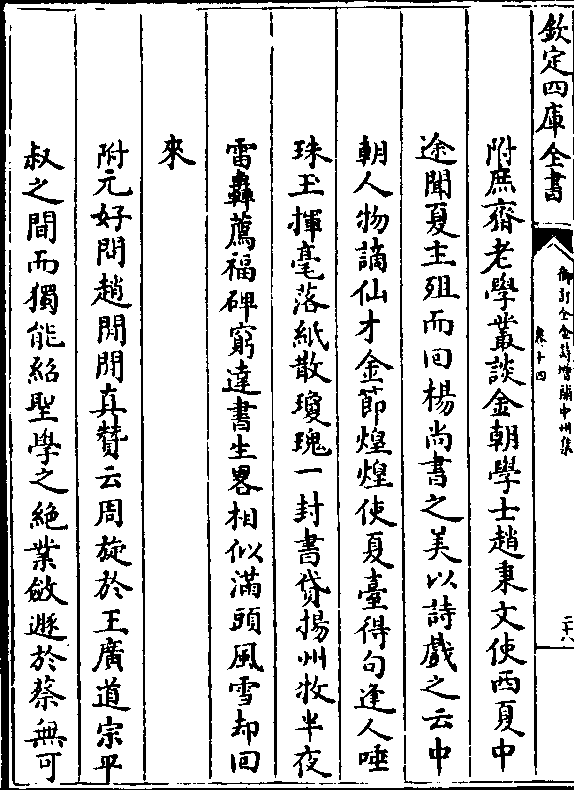 欽定四庫全書
御訂全金詩增補中州集
卷十四
二十八
附庶齋老學叢談金朝學士趙秉文使西夏中
途聞夏主殂而囘楊尚書之美以詩戲之云中
朝人物謫仙才金節煌煌使夏臺得句逢人唾
珠玉揮毫落紙散瓊瑰一封書貸揚州牧半夜
雷轟薦福碑窮達書生畧相似滿頭風雪却囘
來
附元好問趙閒閒真贊云周旋於王廣道宗平
叔之間而獨能紹聖學之絶業斂避於蔡無可